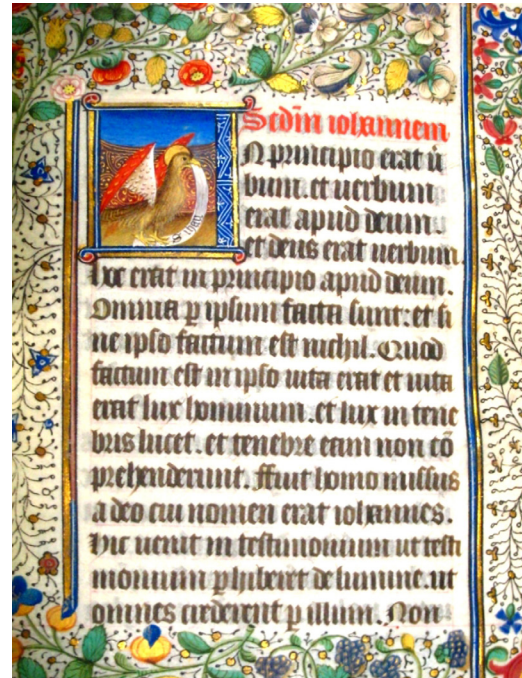 Scdm iohannem
N principio erat u
bum. et uerbum
erat apud deum.
et deus erat uerbum
hoc erat in principio apud deum.
Omnia p ipsum facta sunt: et si
ne ipso factum est nichil. Quod
factum est in ipso uita erat et uita
erat lux hominum. et lux in tene
bris lucet. et tenebre eam non cō
prehenderunt. ffuit homo missus
a deo cui nomen erat iohannes.
hic uenit in testimonium ut testi
monium phiberet de lumine. ut
omnes crederent p illum. Non